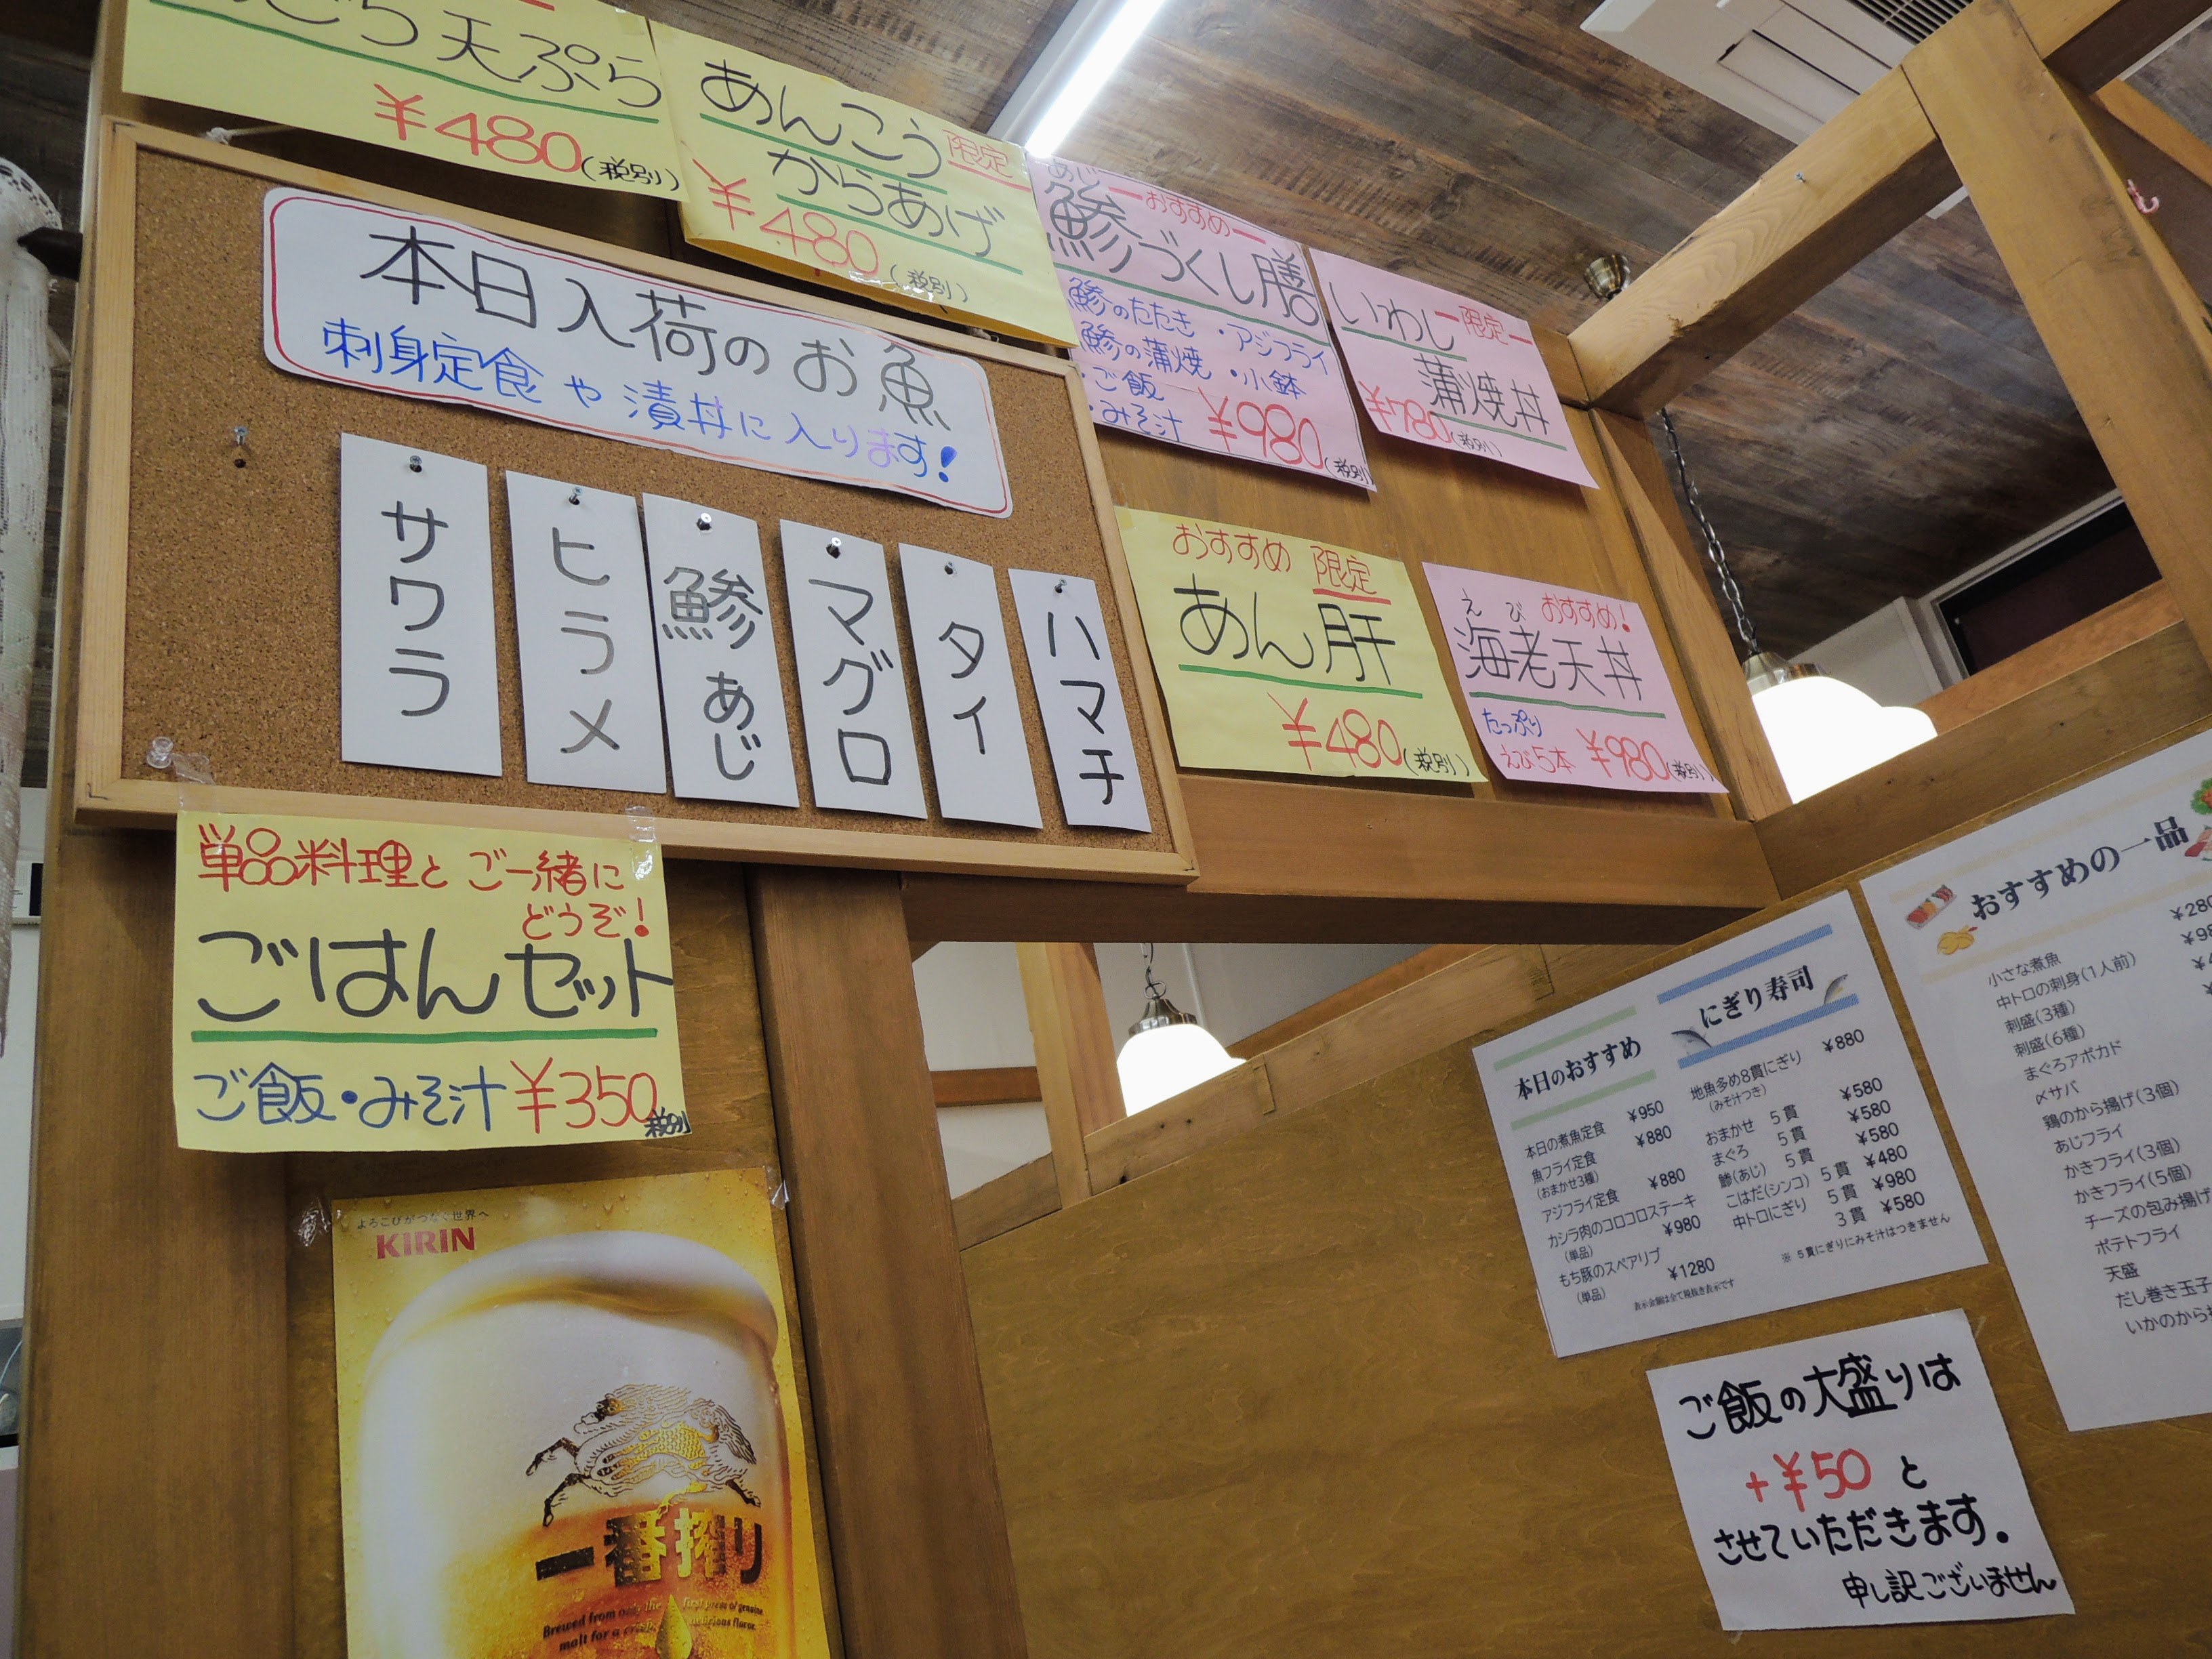 ごち天ぷら
¥480(税別)
あんこう
限定
からあげ
¥480(税別)
あじ
おすすめ
鯵づくし膳
鯵のたたき ・アジフライ
鯵の蒲焼 ・小鉢
・ご飯
・みそ汁
¥980(税別)
いわし
限定
蒲焼丼
¥780(税別)
本日入荷のお魚
刺身定食や漬丼に入ります!
サワラ
ヒラメ
鯵あじ
マグロ
タイ
ハマチ
おすすめ 限定
あん肝
¥480(税別)
えび おすすめ!
海老天丼
たっぷり
えび5本 ¥980(税別)
単品料理とご一緒に
どうぞ!
ごはんセット
ご飯・みそ汁 ¥350税別
よろこびがつなぐ世界へ
KIRIN
一番搾り
Brewed from only the first press of genuine
malt for a delicious flavor.
本日のおすすめ
本日の煮魚定食 ¥950
魚フライ定食 ¥880
(おまかせ3種)
アジフライ定食 ¥880
カシラ肉のコロコロステーキ
(単品) ¥980
もち豚のスペアリブ
(単品) ¥1280
表示金額は全て税抜き表示です
にぎり寿司
地魚多め8貫にぎり ¥880
(みそ汁つき)
おまかせ 5貫 ¥580
まぐろ 5貫 ¥580
鯵(あじ) 5貫 ¥580
こはだ(シンコ) 5貫 ¥480
中トロにぎり 5貫 ¥980
3貫 ¥580
※5貫にぎりにみそ汁はつきません
おすすめの一品
小さな煮魚 ¥280
中トロの刺身(1人前)
刺盛(3種)
刺盛(6種)
まぐろアボカド
〆サバ
鶏のから揚げ(3個)
あじフライ
かきフライ(3個)
かきフライ(5個)
チーズの包み揚げ
ポテトフライ
天盛
だし巻き玉子
いかのから
ご飯の大盛りは
+¥50と
させていただきます。
申し訳ございません